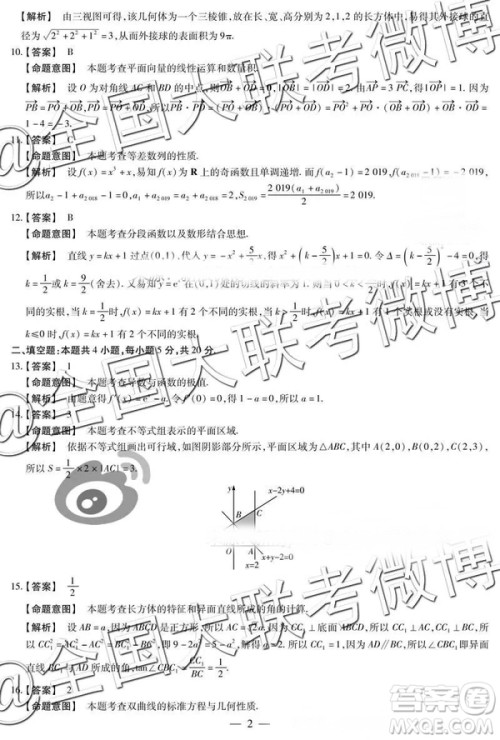 【解析】 由三视图可得,该几何体为一三棱锥,放在长、宽、高分别为 2,1,2 的长方体中,易得其外接球的直
径为√2²+2²+1²=3,从而外接球的表面积为 9π.
10.【答案】 B
【命题意图】 本题考查平面向量的线性运算和数量积.
【解析】 设 O 为对角线 AC 和 BD 的中点,则OB+OD=0,|OB|=|OD|=2.由AP=3PC,得|OP|=1.因为
PB=PO+OB,PD=PO+OD,所以PB·PD=(PO+OB)·(PO+OD)=PO²+PO·(OB+OD)+OB·OD=
1-4=-3.
11.【答案】 C
【命题意图】 本题考查等差数列的性质.
【解析】 设 f(x)=x³+x,易知 f(x) 为 R 上的奇函数且单调递增.而 f(a₂-1)+f(a₂₀₁₈-1)=
所以 a₂-1+a₂₀₁₈-1=0,S₂₀₁₉=2 019(a₁+a₂₀₁₉)/2=2 019.
12.【答案】 B
【命题意图】 本题考查分段函数以及数形结合思想.
【解析】 直线 y=kx+1 过点(0,1),代入 y=-x²+5/2x,得 x²+(k-5/2)x+1=0.令 Δ=(k-5/2)²-4=0,得
k=1/2 或 k=9/2(舍去).
同的实根,当 k=1/2时,f(x)=kx+1 有 2 个不同的实根,当 k>1/2时,f(x)=kx+1 有 1 个不同的实根,当
k≤0 时,f(x)=kx+1 有 2 个不同的实根.
二、填空题:本题共 4 小题,每小题 5 分,共 20 分.
13.【答案】 1
【命题意图】 本题考查导数与函数的极值.
【解析】 由题意得 f′(x)=eˣ-a,令 f′(0)=0,得 1-a=0,所以 a=1.
14.【答案】 3
【命题意图】 本题考查不等式组表示的平面区域.
【解析】 依据不等式组画出可行域,如图阴影部分所示,平面区域为△ABC,其中 A(2,0),B(0,2),C(2,3),
所以 S=1/2×2×|AC|=3.
y
x-2y+4=0
B
C
O
A
x
x+y-2=0
15.【答案】 1/2
【命题意图】 本题考查长方体的特征和异面直线所成的角的计算.
【解析】 设 AB=a,因为 ABCD 是正方形,所以 AC=√2a.因为 CC₁⊥AC,CC₁⊥BC,
以 CC₁²=3²-AC²=BC₁²-BC²,即 9-2a²=5-a²,所以 a=2,所以 CC₁=1.因为 AD∥BC,所以∠CBC₁
所求的角,tan∠CBC₁=CC₁/BC=1/2.
16.【答案】 2
【命题意图】 本题考查双曲线的标准方程与几何性质.
— 2 —
@全国大联考微博
@全国大联考微博
@全国大联考微博
答案圈
MXQE.COM